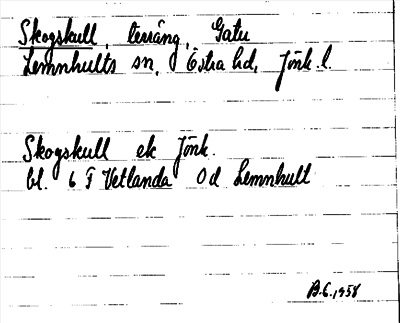 Skogskull, terräng, Gatu
Lemnhults sn, Östra hd, Jönk. l.
Skogskull ek Jönk.
bl. 6 F Vetlanda 0d Lemnhult
B.G. 1958